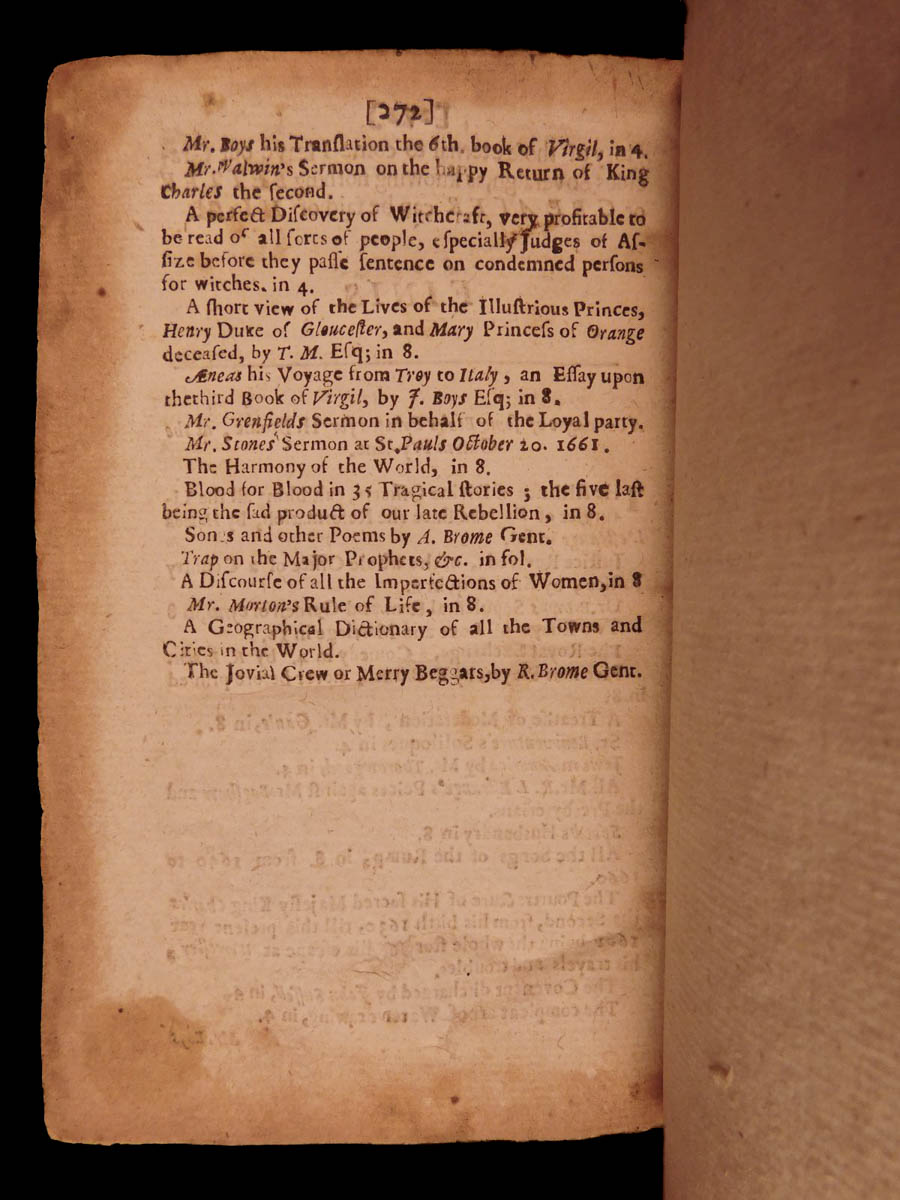 [272]
Mr. Boys his Tranſlation the 6th. book of Virgil, in 4.
Mr. Walwin's Sermon on the happy Return of King
Charles the ſecond.
A perfect Diſcovery of Witchcraft, very profitable to
be read of all ſorts of people, eſpecially Judges of Aſ-
ſize before they paſſe ſentence on condemned perſons
for witches. in 4.
A ſhort view of the Lives of the Illuſtrious Princes,
Henry Duke of Glouceſter, and Mary Princeſs of Orange
deceaſed, by T. M. Eſq; in 8.
Æneas his Voyage from Troy to Italy, an Eſſay upon
thethird Book of Virgil, by J. Boys Eſq; in 8.
Mr. Grenfields Sermon in behalf of the Loyal party.
Mr. Stones Sermon at St. Pauls October 20. 1661.
The Harmony of the World, in 8.
Blood for Blood in 35 Tragical ſtories; the five laſt
being the ſad product of our late Rebellion, in 8.
Songs and other Poems by A. Brome Gent.
Trap on the Major Prophets, &c. in fol.
A Diſcourſe of all the Imperfections of Women, in 8
Mr. Morton's Rule of Life, in 8.
A Geographical Dictionary of all the Towns and
Cities in the World.
The Jovial Crew or Merry Beggars, by R. Brome Gent.